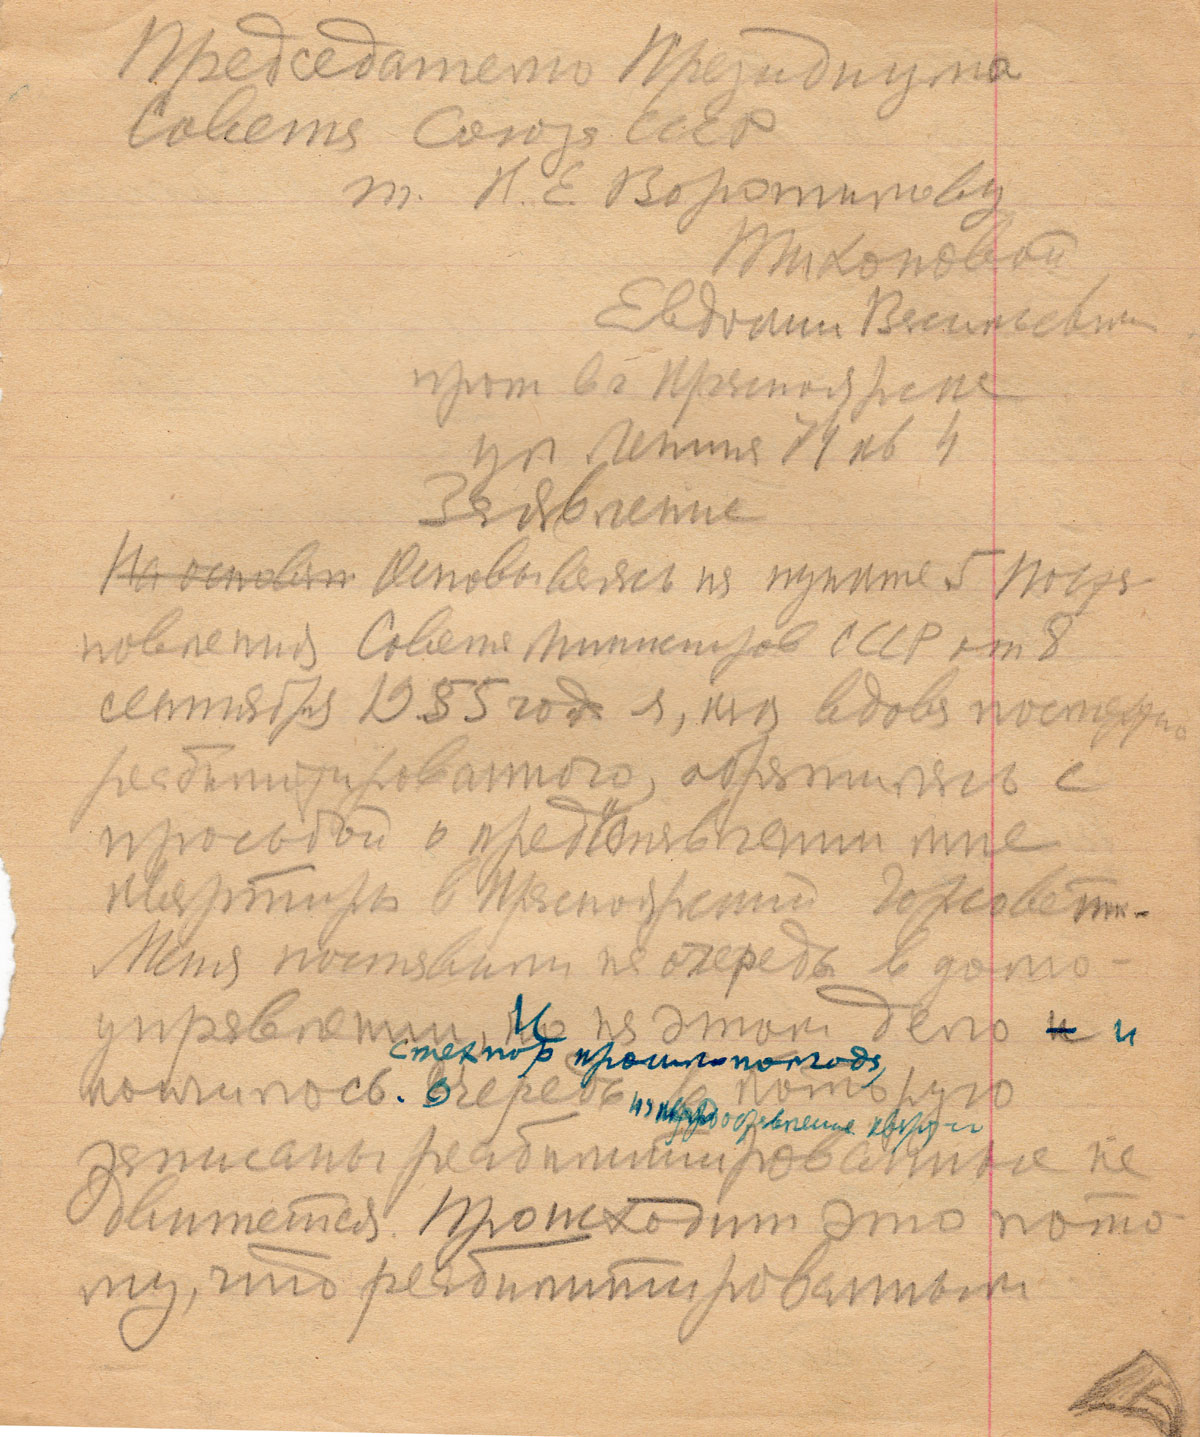 Председателю Президиума
Совета Союза СССР
т. К. Е. Ворошилову
Тихоновой
Евдокии Васильевны
прож в г Красноярске
ул Ленина 74 кв 4
Заявление
На основан Основываясь на пункте 5 Поста-
новления Совета Министров СССР от 8
сентября 1955 года я, как вдова посмертно
реабилитированного, обратилась с
просьбой о предоставлении мне
квартиры в Красноярский Горсовет.
Меня поставили на очередь в домо-
управлении, но И на этом дело к и
с тех пор прошло полгода,
кончилось. Очередь в которую
на предоставление кварт-ы
записаны реабилитированные не
движется. Происходит это пото
му, что реабилитированным